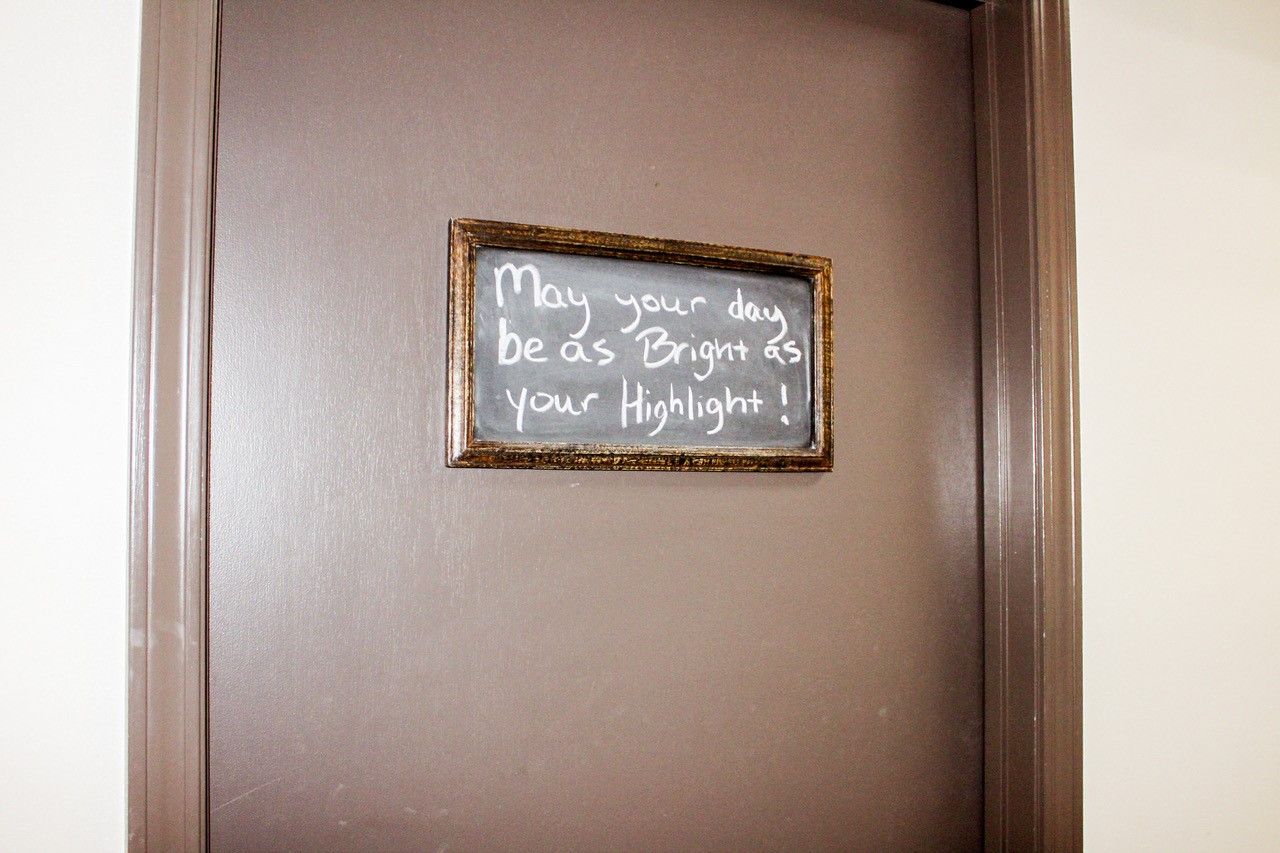 May your day
be as Bright as
your Highlight !